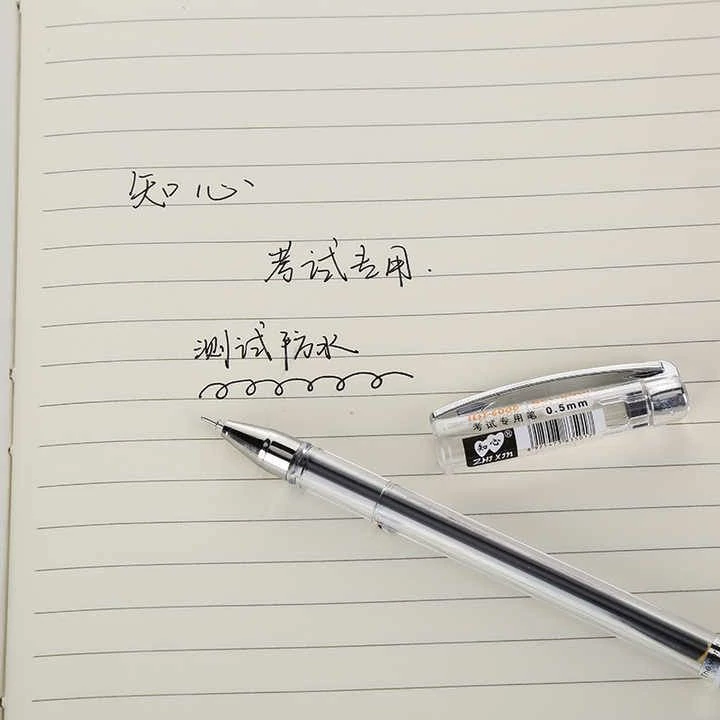 知心
考试专用.
测试防水
考试专用笔 0.5mm
知心®
ZHI XIN